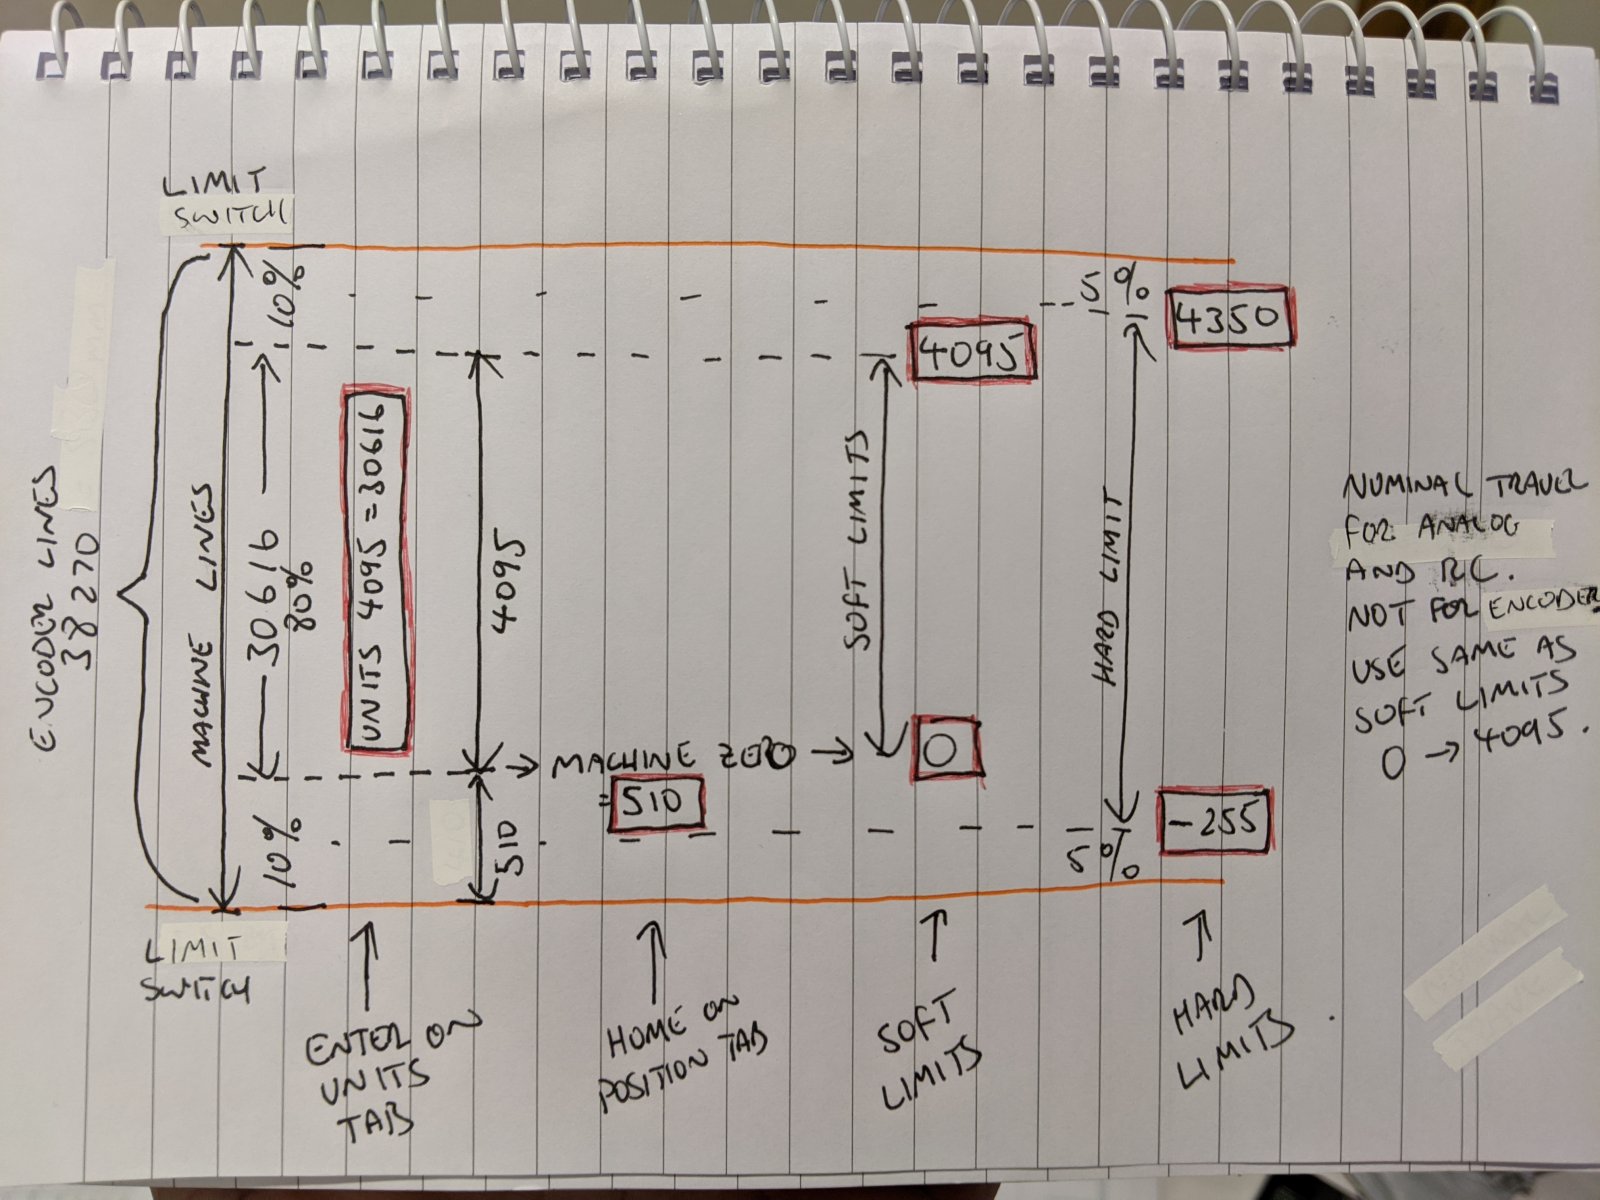 LIMIT
SWITCH
ENCODER LINES
38270
MACHINE LINES
10%
30616
80%
10%
UNITS 4095 = 30616
4095
510
MACHINE ZERO
= 510
SOFT LIMITS
4095
0
5%
HARD LIMIT
5%
4350
-255
NOMINAL TRAVEL
FOR ANALOG
AND RC.
NOT FOR ENCODER.
USE SAME AS
SOFT LIMITS
0 → 4095.
LIMIT
SWITCH
ENTER ON
UNITS
TAB
HOME ON
POSITION TAB
SOFT
LIMITS
HARD
LIMITS.